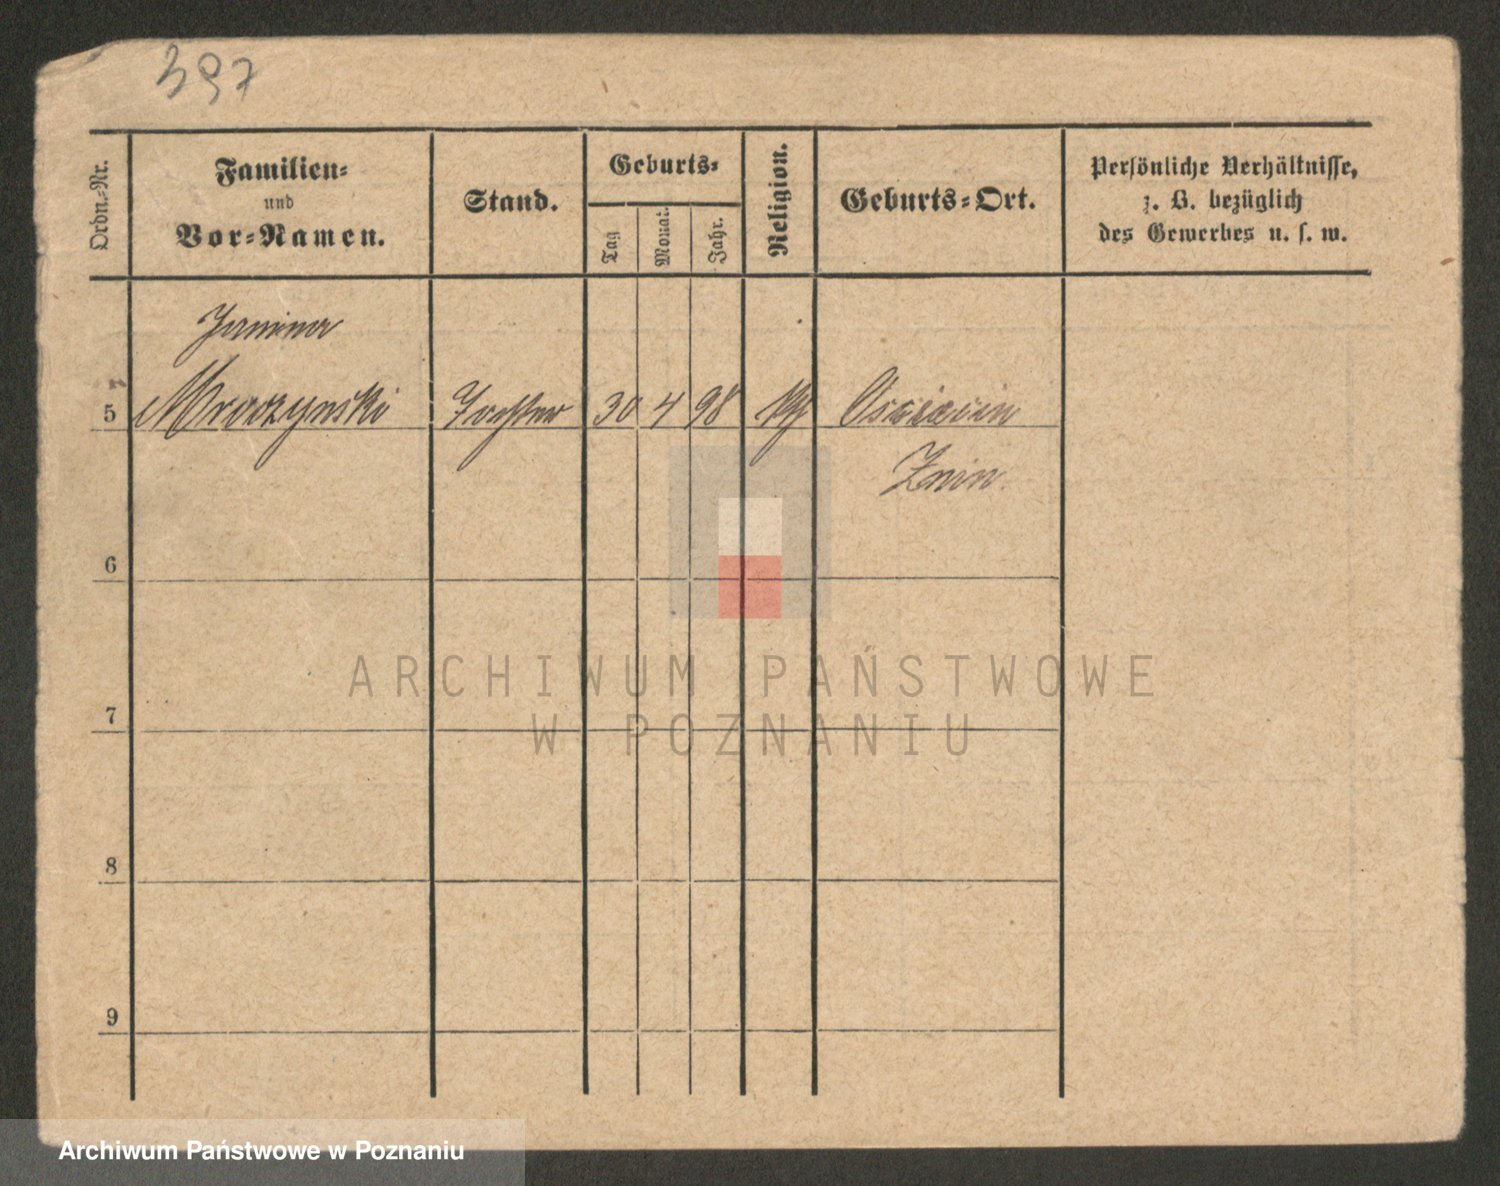 397
Ordn.-Nr.
Familien-
und
Vor-Namen.
Stand.
Geburts-
Tag
Monat.
Jahr.
Religion.
Geburts-Ort.
Persönliche Verhältnisse,
z. B. bezüglich
des Gewerbes u. s. w.
Janina
5 Mroczynski Tochter 30 4 98
Znin
6
ARCHIWUM PAŃSTWOWE
7
W POZNANIU
8
9
Archiwum Państwowe w Poznaniu